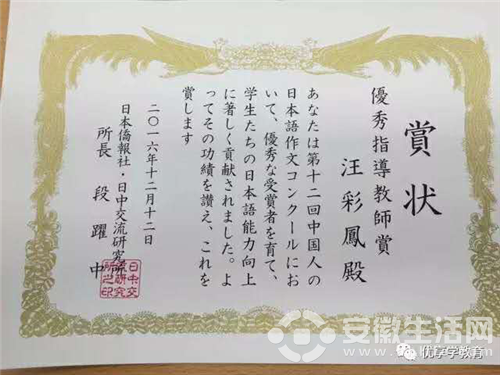 賞状
優秀指導教師賞
汪彩鳳殿
あなたは第十二回中国人の
日本語作文コンクールにお
いて、優秀な受賞者を育て、
学生たちの日本語能力向上
に著しく貢献されました。よ
ってその功績を讃え、これを
賞します
二〇一六年十二月十二日
日本僑報社・日中交流研究所
所長 段 躍 中
日中交
流研究
所之印
安徽生活网
优享学教育